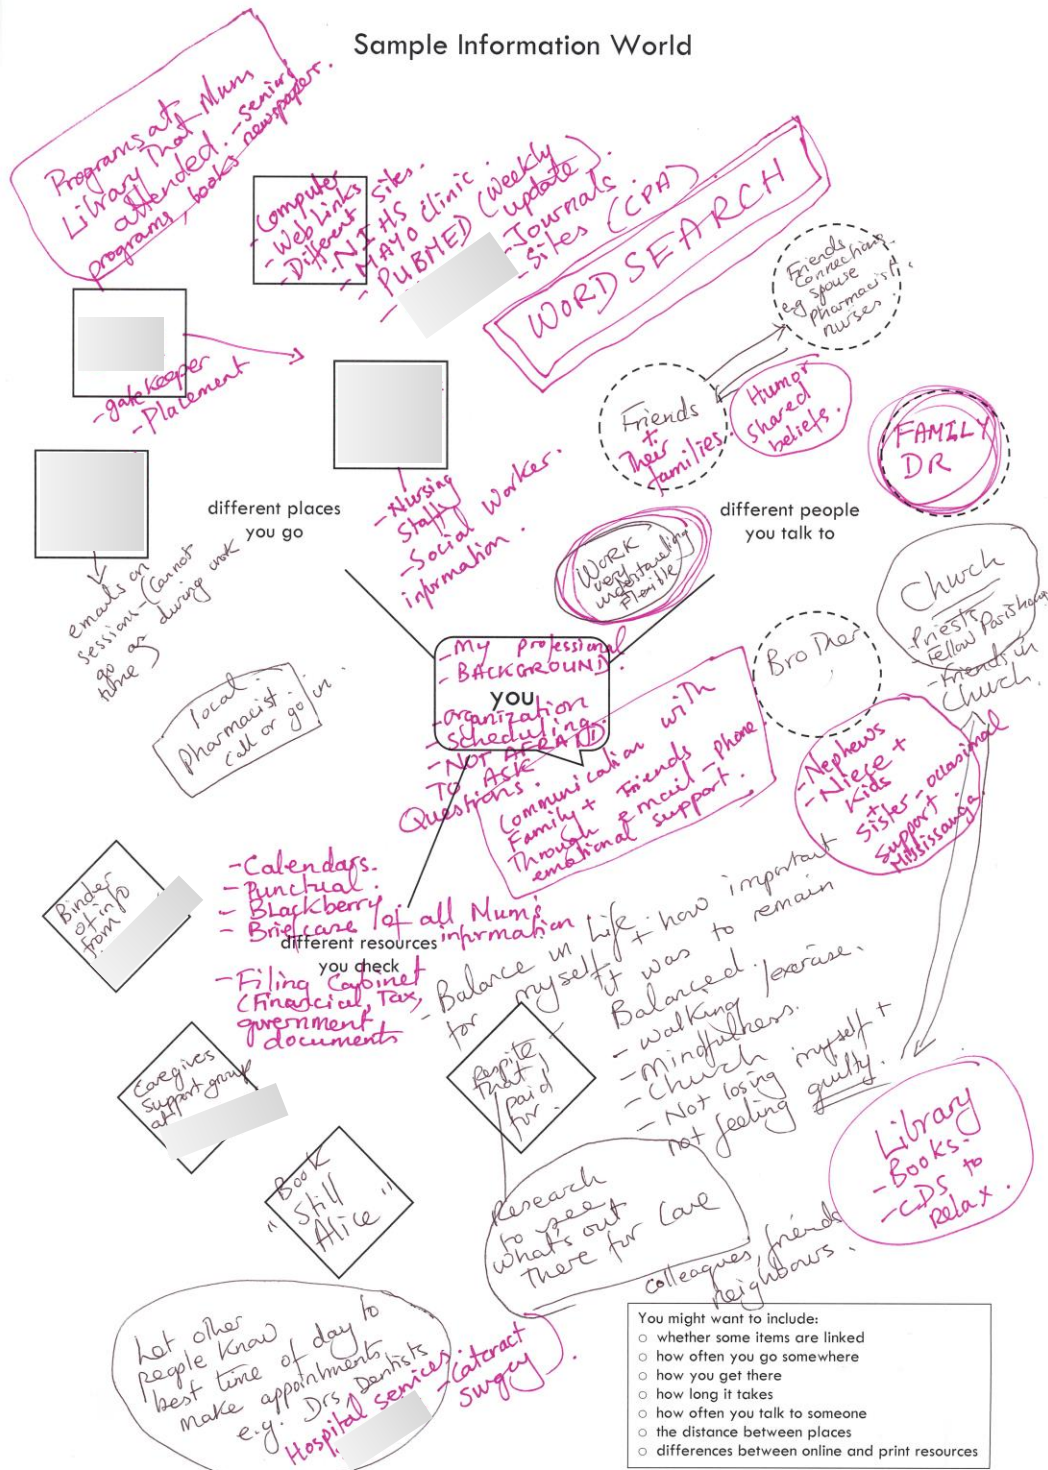 Sample Information World
Programs at
Library that Mum
attended. - seniors
programs, books newspapers.
- Computer
- Web Links
- Different Sites.
- NIHS
- MAYO Clinic
- PUBMED (weekly
update).
- Journals.
- Sites (CPA).
WORD SEARCH
Friends
Connections
e.g spouse
pharmacist,
nurses.
- gatekeeper
- Placement
Friends
+
Their
families.
Humor
Shared
beliefs.
FAMILY
DR
- Nursing
Staff
- Social Worker.
information.
different places
you go
different people
you talk to
emails on
sessions - (Cannot
go as during work
time)
WORK
very
understanding
Flexible
Church
Priests
- Fellow Parishioners
- Friends in
Church.
Brother
- My professional
- BACKGROUND.
you
- Organization
- Scheduling.
- NOT AFRAID
TO ASK
Questions.
local
pharmacist
call or go in.
Communication with
Family + Friends
Through email - phone
emotional support.
- Nephews
- Niece +
Kids
+
Sister - occasional
Support
Mississauga.
- Calendars.
- Punctual.
- Blackberry
- Briefcase / of all Mum's
information
different resources
you check
- Filing Cabinet
(Financial, Tax,
government
documents
Binder
of info
from
- Balance in Life + how important
for myself + it was to remain
Balanced.
- walking / exercise.
- mindfulness.
- Church
- Not losing myself +
not feeling guilty.
Caregivers
Support group
at
Respite
that I
paid
for.
Book
"Still
Alice"
Research
to see
what's out
there for Care
colleagues, friends
neighbours.
Library
- Books.
- CDS to
relax.
Let other
people know
best time of day to
make appointments
e.g. Drs Dentists
Hospital Services.
- Cataract
Surgery).
You might want to include:
○ whether some items are linked
○ how often you go somewhere
○ how you get there
○ how long it takes
○ how often you talk to someone
○ the distance between places
○ differences between online and print resources